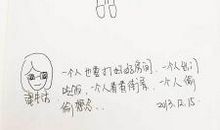 一个人也要打扫好房间，一个人出门
吃饭，一个人看看街景，一个人偷
偷想念..
2013.12.15